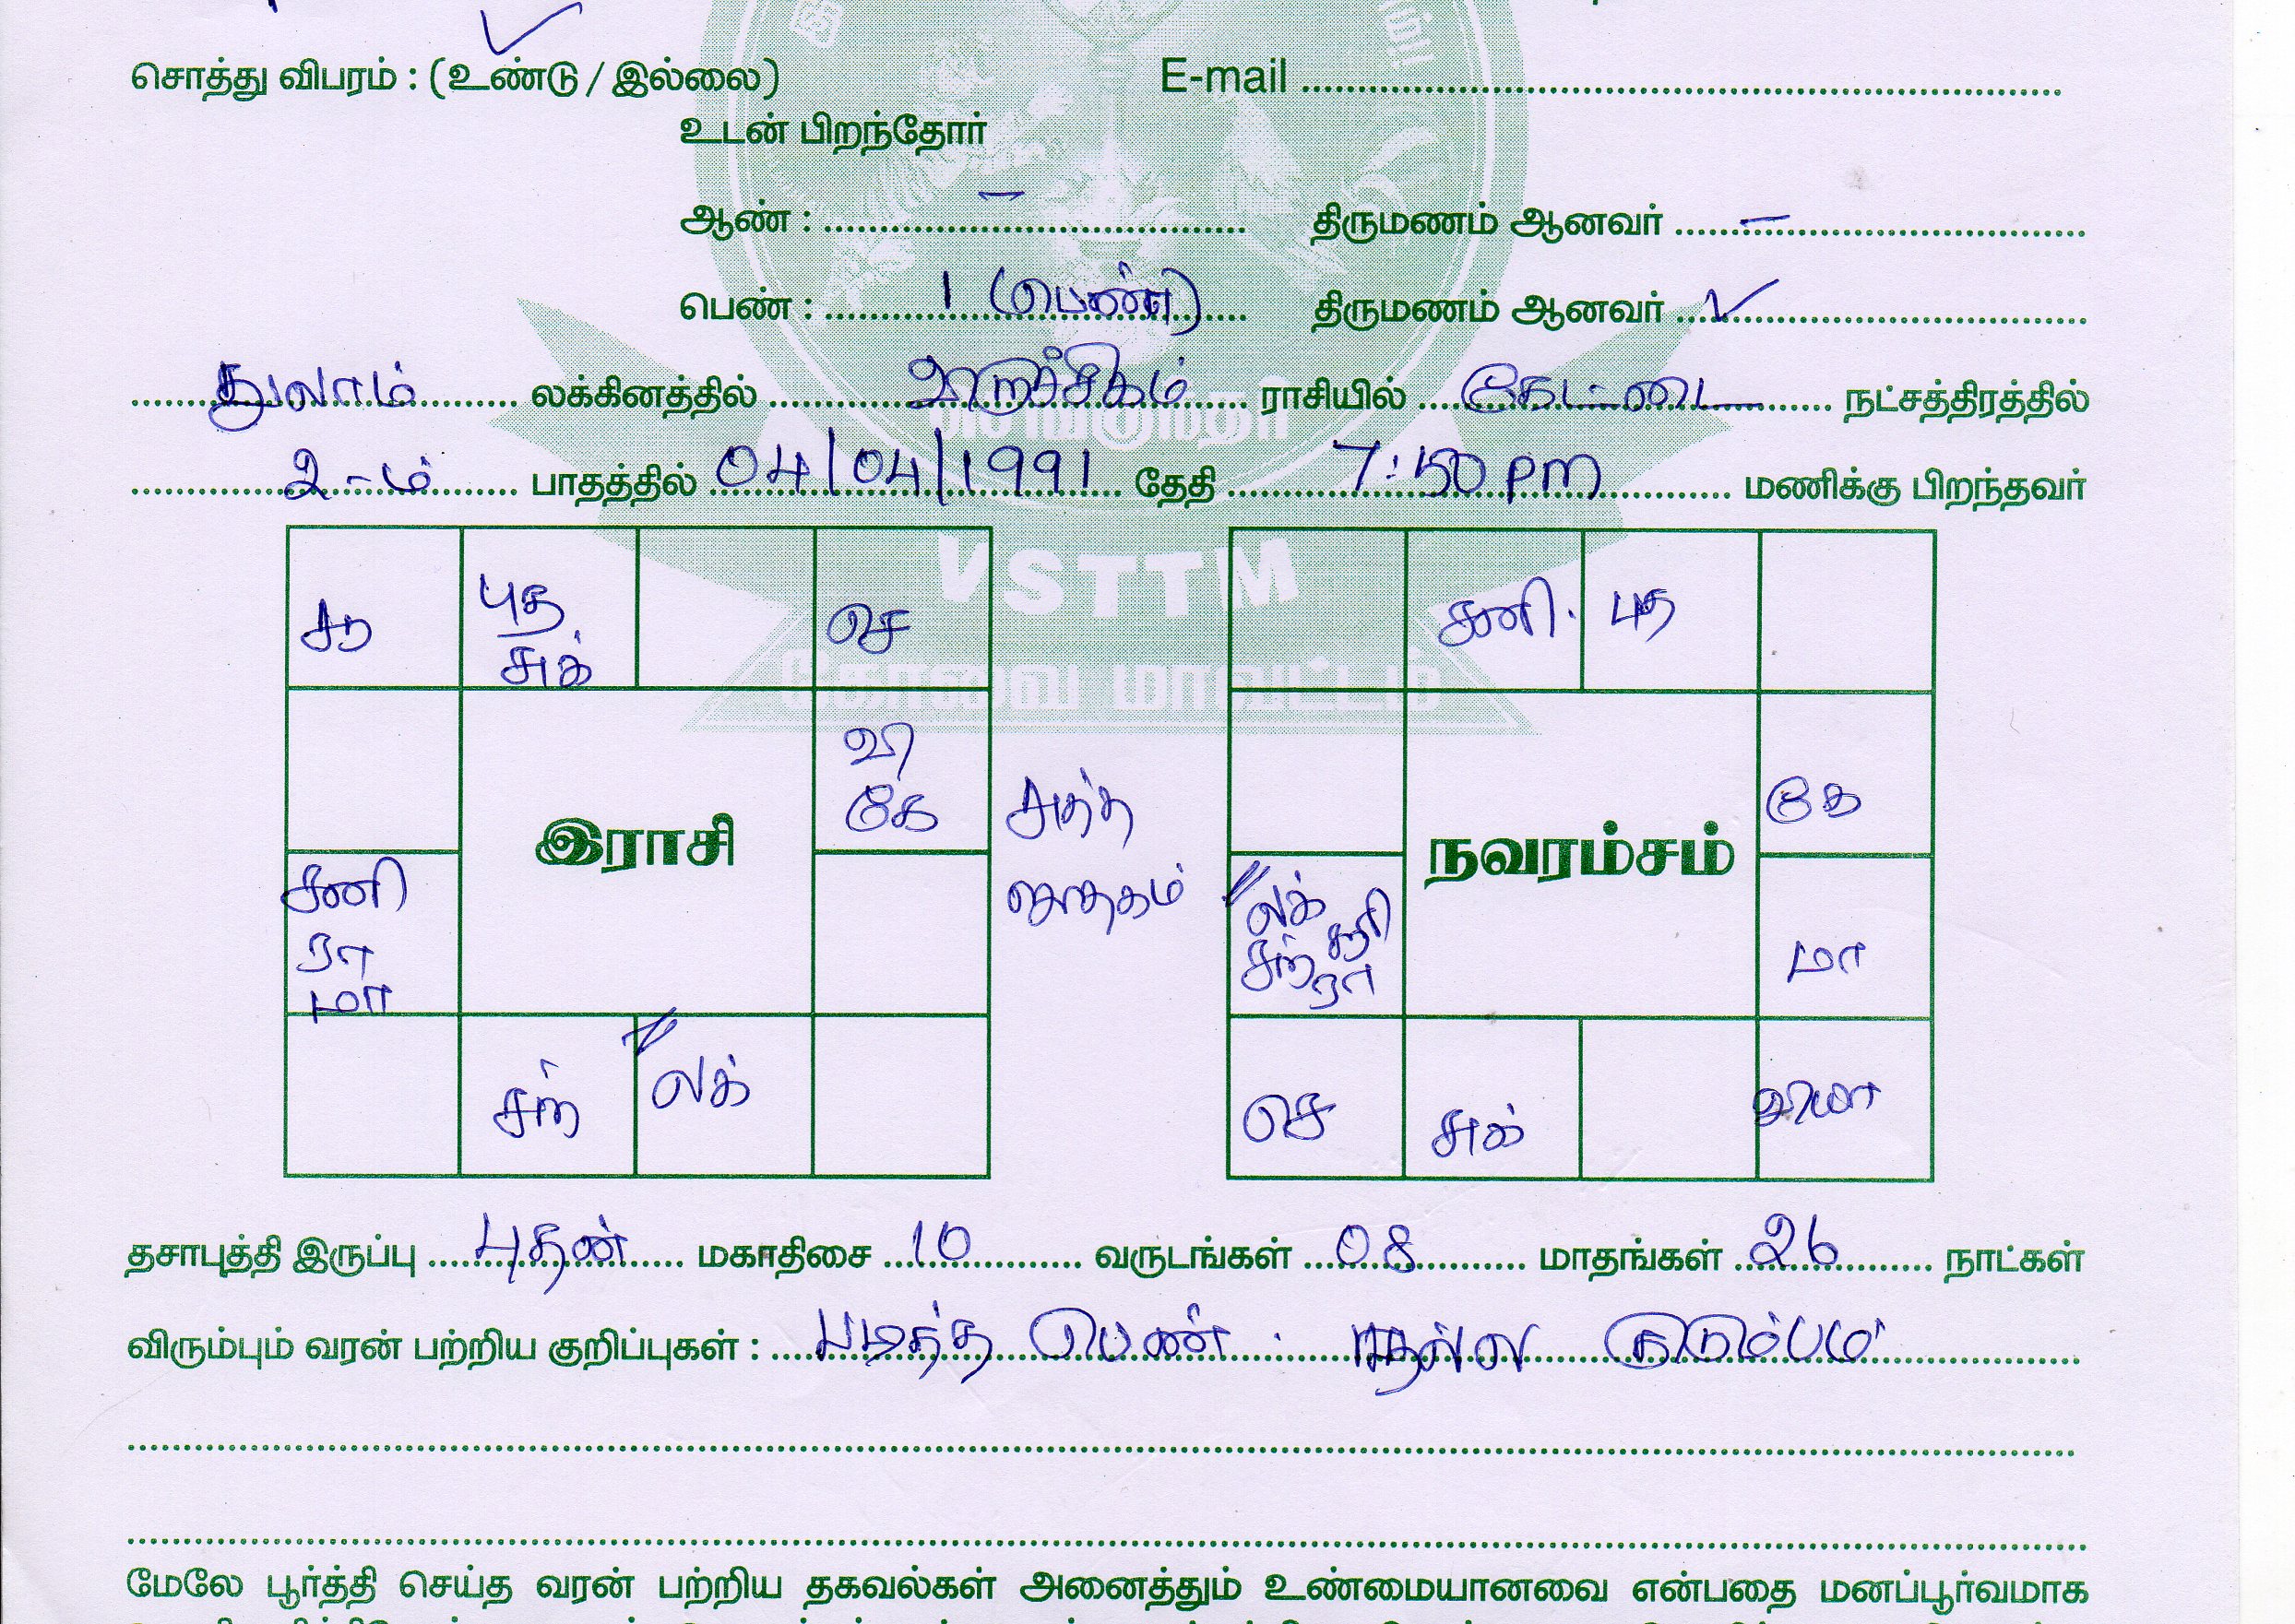 சொத்து விபரம் : (உண்டு / இல்லை) E-mail
உடன் பிறந்தோர்
ஆண் : – திருமணம் ஆனவர் –
பெண் : 1 (பெண்) திருமணம் ஆனவர் ✓
துலாம் லக்கினத்தில் விருச்சிகம் ராசியில் கேட்டை நட்சத்திரத்தில்
2-ம் பாதத்தில் 04/04/1991 தேதி 7:50 pm மணிக்கு பிறந்தவர்
VSTTM
கோவை மாவட்டம்
சூ புத செ சனி. புத
சுக்
வி
கே கே
சுத்த
இராசி நவரம்சம்
சனி ஜாதகம் லக் சூரி
ரா சந் ரா மா
மா
சந் லக் செ சுக் வியா
தசாபுத்தி இருப்பு புதன் மகாதிசை 10 வருடங்கள் 08 மாதங்கள் 26 நாட்கள்
விரும்பும் வரன் பற்றிய குறிப்புகள் : படித்த பெண். நல்ல குடும்பம்
மேலே பூர்த்தி செய்த வரன் பற்றிய தகவல்கள் அனைத்தும் உண்மையானவை என்பதை மனப்பூர்வமாக